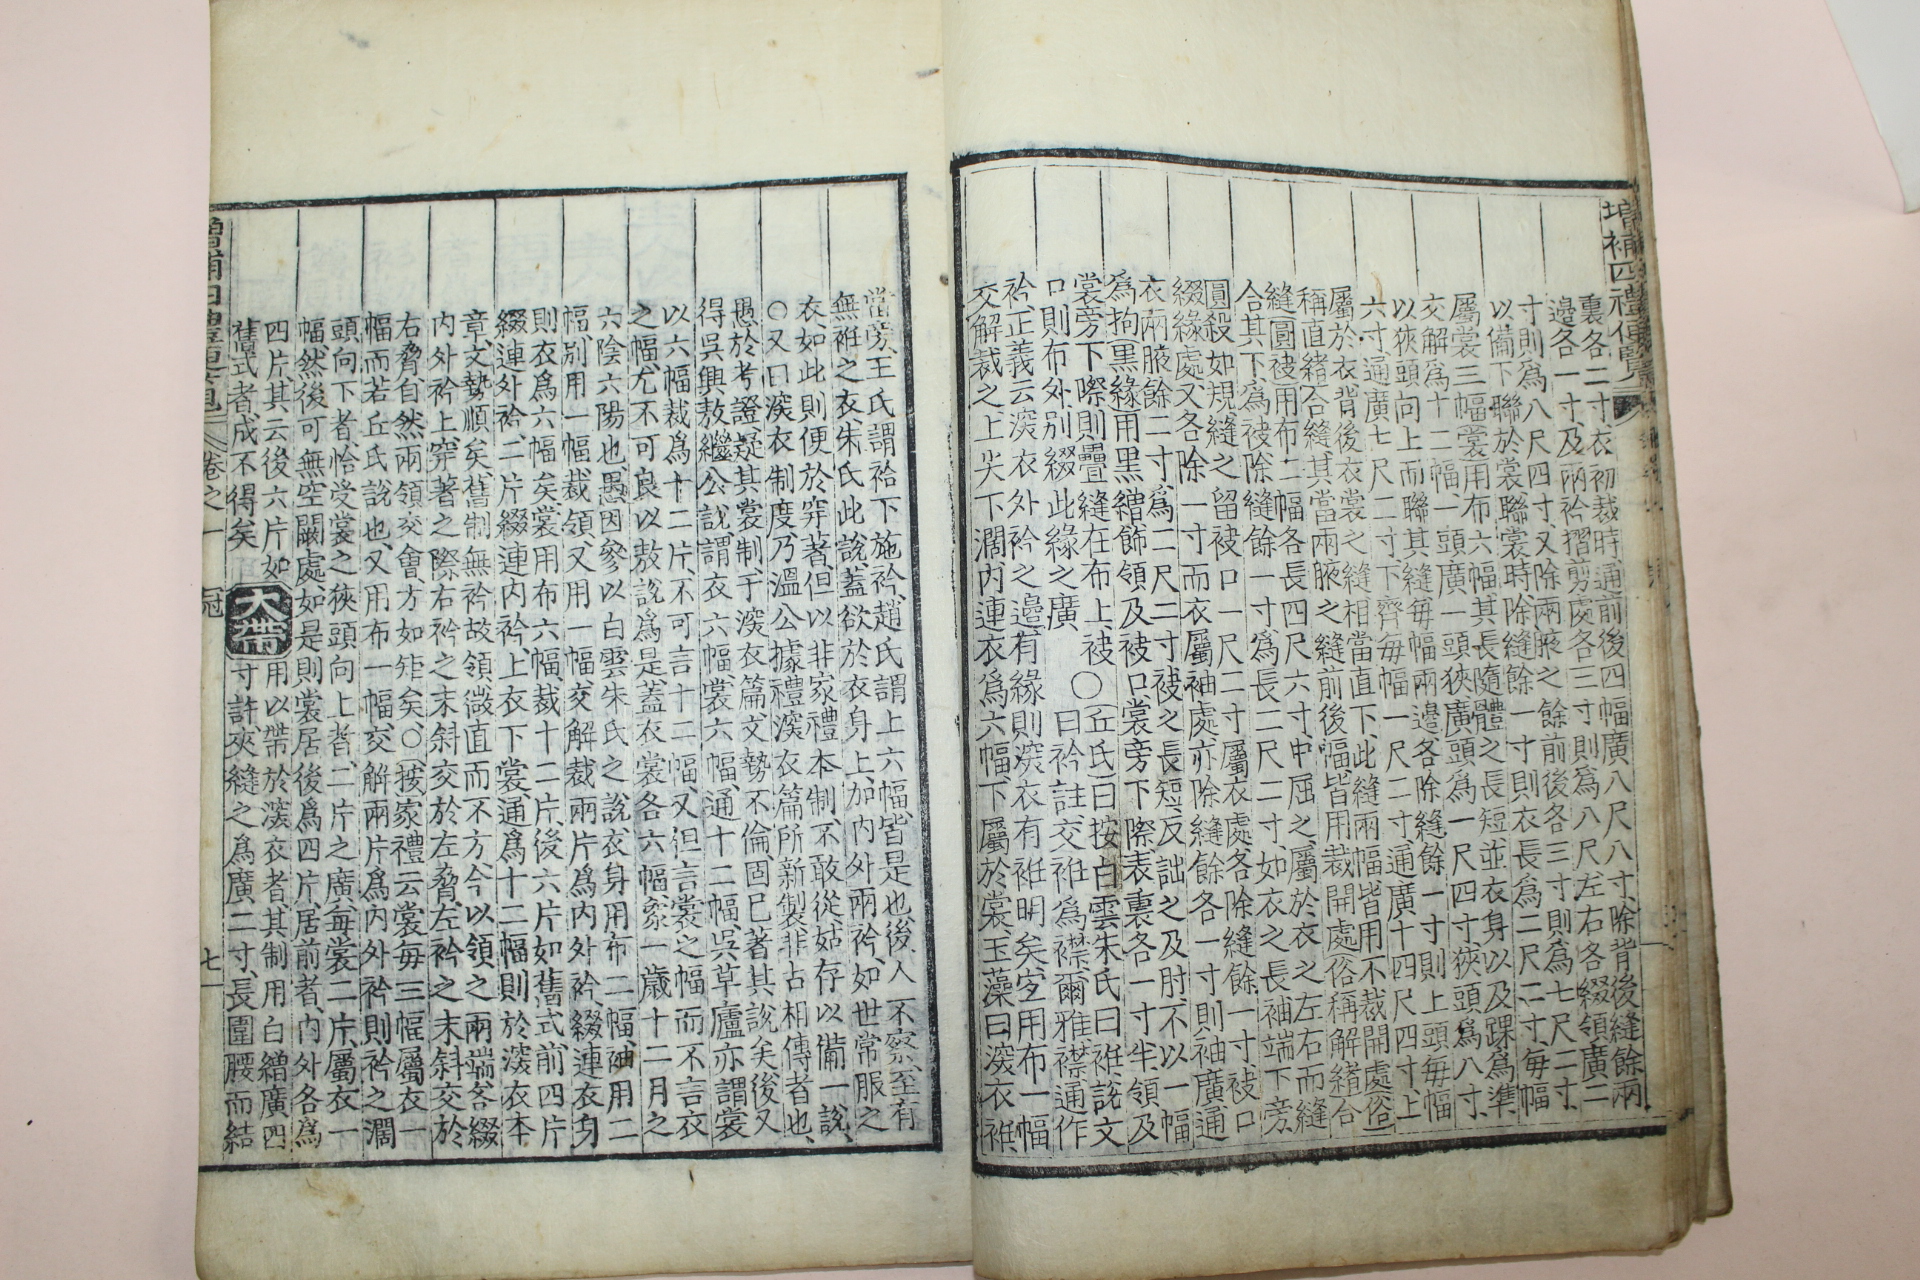 增補四禮便覽
裏各二寸、衣初裁時通前後四幅廣八尺八寸、除背後縫餘兩
邊各一寸、及兩衿摺剪處各三寸則爲八尺左右各綴領廣二
寸則爲八尺四寸、又除兩腋之餘前後各三寸則爲七尺二寸、
以備下聯於裳聯裳時、除縫餘一寸則衣長爲二尺二寸、每幅
屬裳三幅裳用布六幅、其長隨體之長短、並衣身以及踝爲準
交解爲十二幅、一頭廣一頭狹廣頭爲一尺四寸、狹頭爲八寸、
以狹頭向上而聯其縫每幅兩邊、各除縫餘一寸則上頭每幅
六寸通廣七尺二寸下齊每幅一尺二寸通廣十四尺四寸上
屬於衣背後衣裳之縫相當直下、此縫兩幅皆用不裁開處(俗
稱直緖)合縫、其當兩腋之縫前後幅、皆用裁開處(俗稱解緖合
縫(圓袂)用布二幅各長四尺六寸、中屈之、屬於衣之左右而縫
合其下、爲袂除縫餘一寸、爲長二尺二寸、如衣之長袖端下旁、
圓殺如規縫之留袂口一尺二寸屬衣處各除縫餘一寸袂口
綴緣處又各除一寸而衣屬袖處亦除縫餘各一寸則袖廣通
衣兩腋餘二寸、爲二尺二寸袂之長短、反詘之及肘、不以一幅
爲拘(黑緣)用黑繒飾領及袂口裳旁下際、表裏各一寸半、領及
裳旁下際則疊縫在布上、袂
口則布外別綴此緣之廣
○(丘氏)曰按白雲朱氏曰袵說文
曰衿註、交袵爲襟爾雅襟通作
衿、正義云深衣外衿之邊有緣則深衣有袵明矣、宐用布一幅
交解裁之上尖下濶內連衣爲六幅下屬於裳玉藻曰深衣袵
當旁、王氏謂袷下施衿、趙氏謂上六幅、皆是也、後人不察、至有
無袵之衣、朱氏此說、蓋欲於衣身上、加內外兩衿、如世常服之
衣、如此則便於穿著、但以非家禮本制、不敢從、姑存以備一說、
○又曰深衣制度、乃溫公據禮深衣篇所新製、非古相傳者也、
愚於考證疑其裳制、于深衣篇文勢不倫、固已著其說矣、後又
得吳興敖繼公說、謂衣六幅、裳六幅、通十二幅、吳草廬亦謂裳
以六幅裁爲十二片、不可言十二幅、又但言裳之幅而不言衣
之幅、尤不可、良以敖說爲是、蓋衣裳各六幅、象一歲十二月之
六陰六陽也、愚因參以白雲朱氏之說衣身用布二幅、袖用二
幅、別用一幅裁領、又用一幅、交解裁兩片爲內外衿、綴連衣身
則衣爲六幅矣、裳用布六幅、裁十二片、後六片如舊式、前四片
綴連外衿、二片綴連內衿、上衣下裳通爲十二幅、則於深衣本
章、文勢順矣、舊制無衿故領微直而不方今以領之兩端各綴
內外衿上、穿著之際右衿之末斜交於左脅、左衿之末斜交於
右脅、自然兩領交會方如矩矣、○按家禮云裳每三幅屬衣一
幅而若丘氏說也、又用布一幅交解兩片爲內外衿則衿之濶
頭向下者、恰受裳之狹頭向上者、二片之廣、每裳二片、屬衣一
幅、然後可無空闕處如是則裳居後爲四片、居前者、內外各爲
四片其云後六片如
舊式者、成不得矣
大帶
用以帶於深衣者、其制用白繒廣四
寸許、夾縫之爲廣二寸、長圍腰而結
卷之一
冠
七